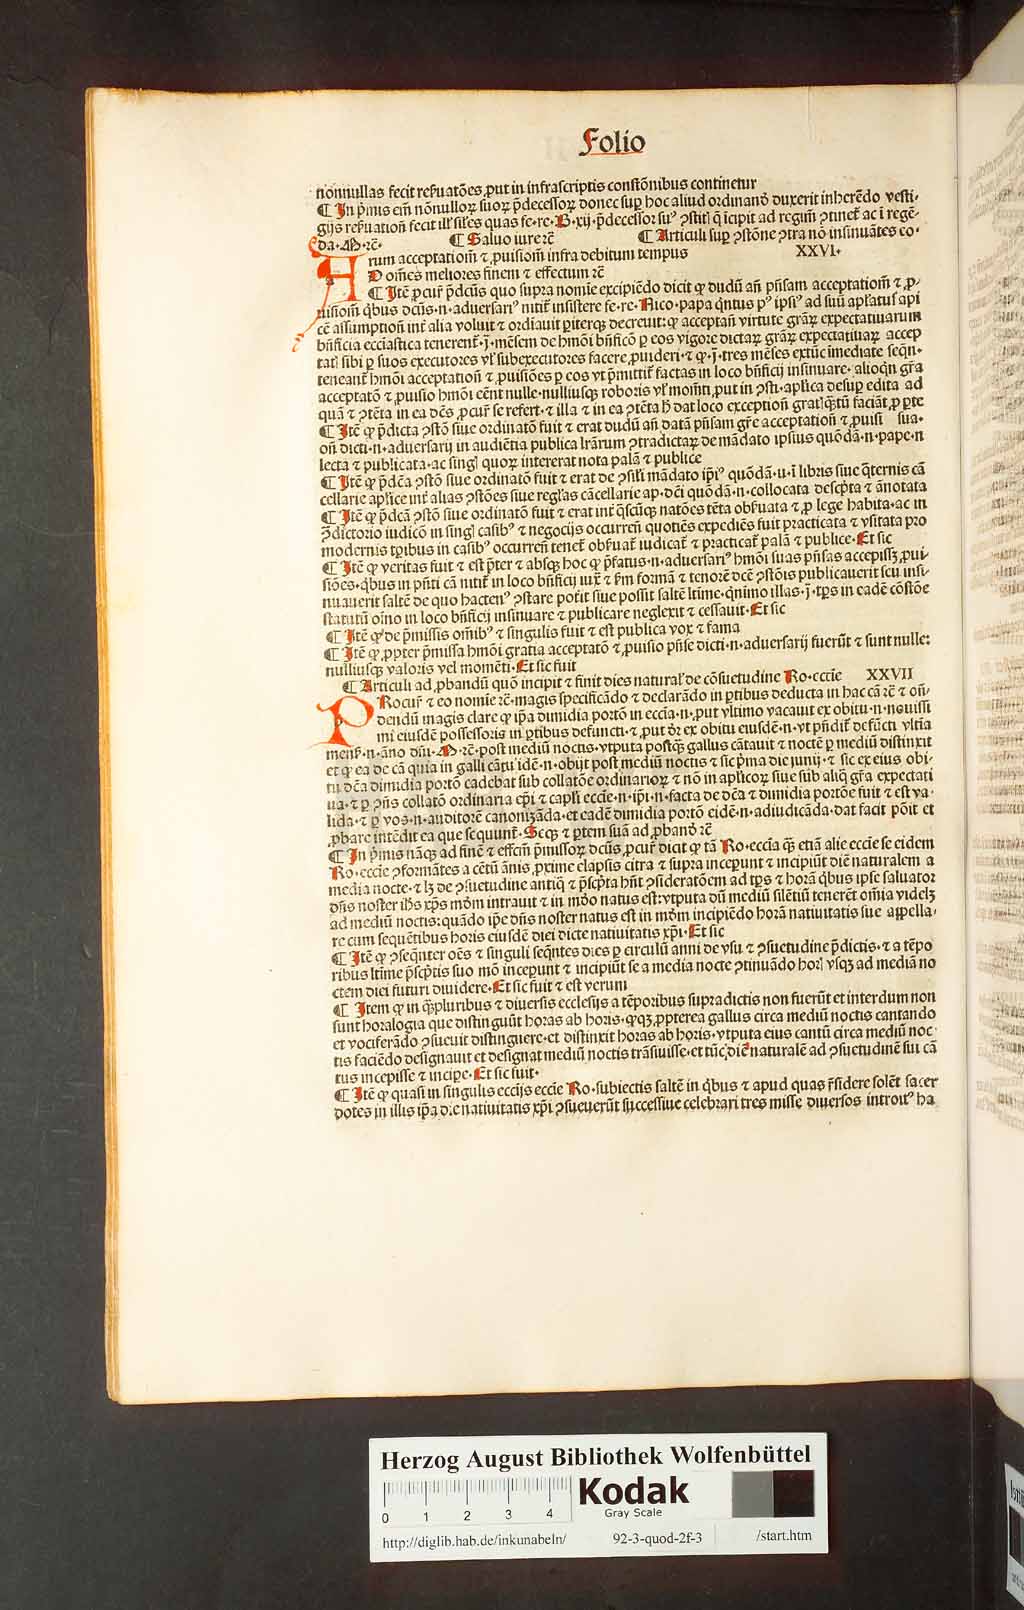 Folio
nonnullas fecit reẜuatões ꝓut in infrascriptis constõnibus continetur
¶ In p̃mis em̃ nõnulloꝝ suoꝝ p̃decessoꝝ donec suꝑ hoc aliud ordinand̾ duxerit inherẽdo vesti⸗
gijs reẜuation̄ fecit
da. M. rẽ. ¶ Saluo iure rẽ ¶ Articuli suꝑ ꝯstõne ꝯtra nõ insinuãtes eo⸗
rum acceptatiom̃ ⁊ ꝓuisiom̃ infra debitum tempus XXVI.
A
D om̃es meliores finem ⁊ effectum rẽ
¶ Itẽ ꝓcur̃ p̃dcũs quo supra nomie excipiẽdo dicit ꝙ dudũ añ p̃nsam acceptatiom̃ ⁊ ꝓ⸗
cẽ assumption̄ int̃ alia voluit ⁊ ordiauit ꝑiterqꝫ decreuit: ꝙ acceptañ virtute gr̃aꝝ expectatiuarum
bñficia eccĩastica tenerent̃. j. mẽsem de hm̃õi bñficõ ꝑ eos vigore dictaꝝ gr̃aꝝ expectatiuaꝝ accep
tat̃ sibi ꝑ suos executores vl̃ subexecutores facere ꝓuideri. ⁊ ꝙ. j. tres mẽses extũc ĩmediate seqñ⸗
teneant̃ hm̃õi acceptation̄ ⁊ ꝓuisiões ꝑ eos vt p̃mittit̃ factas in loco bñficij insinuare. alioqñ gr̃a
acceptatõ ⁊ ꝓuisio hm̃õi cẽnt nulle. nulliusqꝫ roboris vl̃ mom̃ti ꝓut in ꝯsti. apl̃ica desuꝑ edita ad
quã ⁊ ꝯtẽta in ea dẽs ꝓcur̃ se refert. ⁊ illa ⁊ in ea ꝯtẽta
¶ Itẽ ꝙ p̃dicta ꝯstõ siue ordinatõ fuit ⁊ erat dudũ añ datã p̃nsam gr̃e acceptation̄ ⁊ ꝓuisi sua⸗
oñ dicti. n. aduersarij in audiẽtia publica lr̃arum ꝯtradictaꝝ de mãdato ipsius quõdã. n. pape. n
lecta ⁊ publicata. ac singl̃ quoꝝ intererat nota palã ⁊ publice
¶ Itẽ ꝙ p̃dcã ꝯstõ siue ordinatõ fuit ⁊ erat de ꝯsil̃i mãdato ip̃i⁹ quõdã. n. ĩ libris siue q̃ternis cã
cellarie apl̃ice int̃ alias ꝯstões siue regl̃as cãcellarie ap. dc̃i quõdã. n. collocata descp̃ta ⁊ ãnotata
¶ Itẽ ꝙ p̃dcã ꝯstõ siue ordinatõ fuit ⁊ erat int̃ q̃scũqꝫ natões tẽta obẜuata ⁊ ꝓ lege habita. ac in
ꝯdictorio iudicõ in singl̃ casib⁹ ⁊ negocijs occurreñ quotiẽs expediẽs fuit practicata ⁊ vsitata pro
modernis tꝑibus in casib⁹ occurreñ tenet̃ obẜuat̃ iudicat̃ ⁊ practicat̃ palã ⁊ publice. Et sic
¶ Itẽ ꝙ veritas fuit ⁊ est p̃ter ⁊ absqꝫ hoc ꝙ p̃fatus. n. aduersari⁹ hm̃õi suas p̃nsas accepissꝫ ꝓui⸗
siões. q̃bus in p̃nti cã nitit̃ in loco bñficij iux̃ ⁊ ẜm formã ⁊ tenorẽ dcẽ ꝯstõis publicauerit seu insi⸗
nuauerit saltẽ de quo hacten⁹ ꝯstare potit siue possit saltẽ ltime. q̃nĩmo illas. j. tꝑs in eadẽ cõstõe
statutũ oĩno in loco bñficij insinuare ⁊ publicare neglexit ⁊ cessauit. Et sic
¶ Itẽ ꝙ de p̃missis om̃ib⁹ ⁊ singulis fuit ⁊ est publica vox ⁊ fama
¶ Itẽ ꝙ ꝓpter p̃missa hm̃õi gratia acceptatõ ⁊ ꝓuisio p̃nse dicti. n. aduersarij fuerũt ⁊ sunt nulle:
nulliusqꝫ valoris vel momẽti. Et sic fuit
¶ Articuli ad ꝓbandũ quõ incipit ⁊ finit dies natural̃ de cõsuetudine Ro. eccĩe XXVII
P
Rocur̃ ⁊ eo nomie rẽ. magis specificãdo ⁊ declarãdo in ꝑtibus deducta in hac cã rẽ ⁊ oñ⸗
dendũ magis clare ꝙ ip̃a dimidia portõ in eccĩa. n. ꝓut vltimo vacauit ex obitu. n. nouissi
mi eiusdẽ possessoris in ꝑtibus defuncti. ⁊ ꝓut d̾r ex obitu eiusdẽ. n. vt p̃ndit̃ defũcti vltĩa
mens̃. n. ãno dñi. M. rẽ. post mediũ noctis. vtputa postqꝫ̃ gallus cãtauit ⁊ noctẽ ꝑ mediũ distinxit
et ꝙ ea de cã quia in galli cãtu idẽ. n. obijt post mediũ noctis ⁊ sic p̃ma die junij. ⁊ sic ex eius obi⸗
tu dcã dimidia portõ cadebat sub collatõe ordinarioꝝ ⁊ nõ in apl̃icoꝝ siue sub aliq̃ gr̃a expectati
ua. ⁊ ꝑ ꝯñs collatõ ordinaria ep̃i ⁊ capl̃i eccĩe. n. ip̃i. n. facta de dcã ⁊ dimidia portõe fuit ⁊ est va⸗
lida. ⁊ ꝑ vos. n. auditorẽ canonizãda. et eadẽ dimidia portõ eidẽ. n. adiudicãda. dat facit põit et
ꝓbare intẽdit ea que sequunt̃. Seqꝫ ⁊ ꝑtem suã ad ꝓband̾ rẽ
¶ In p̃mis nãqꝫ ad finẽ ⁊ effcm̃ p̃missoꝝ dcũs ꝓcur̃ dicit ꝙ tã Ro. eccĩa q̃ꝫ etiã alie eccĩe se eidem
Ro. eccĩe ꝯformãtes a cẽtũ ãnis ꝓxime elapsis citra ⁊ supra incepunt ⁊ incipiũt diẽ naturalem a
media nocte. ⁊ lꝫ de ꝯsuetudine antiq̃ ⁊ p̃scp̃ta hñt ꝯsideratõem ad tꝑs ⁊ horã q̃bus ipse saluator
dñs noster ihs̃ xp̃s mõm intrauit ⁊ in mõo natus est: vtputa dũ mediũ silẽtiũ tenerẽt om̃ia videlꝫ
ad mediũ noctis: quãdo ip̃e dñs noster natus est in mõm incipiẽdo horã natiuitatis sue appella⸗
re cum sequẽtibus horis eiusdẽ diei dicte natiuitatis xp̃i. Et sic
¶ Itẽ ꝙ ꝯseqñter oẽs ⁊ singuli seqñtes dies ꝑ circulũ anni de vsu ⁊ ꝯsuetudine p̃dictis. ⁊ a tẽpo
ribus ltĩme p̃scp̃tis suo mõ incepunt ⁊ incipiũt se a media nocte ꝯtinuãdo hor̃ vsqꝫ ad mediã no
ctem diei futuri diuidere. Et sic fuit ⁊ est verum
¶ Item ꝙ in q̃ꝫpluribus ⁊ diuersis ecclesijs a tẽporibus supradictis non fuerũt et interdum non
sunt horalogia que distinguũt horas ab horis. ꝙqꝫ ꝓpterea gallus circa mediũ noctis cantando
et vociferãdo ꝯsueuit distinguere. et distinxit horas ab horis. vtputa eius cantũ circa mediũ noc⸗
tis faciẽdo designauit et designat mediũ noctis trãsiuisse. et tũc diẽ naturalẽ ad ꝯsuetudinẽ sui cã
tus incepisse ⁊ incipe. Et sic fuit.
¶ Itẽ ꝙ quasi in singulis eccĩjs eccĩe Ro. subiectis saltẽ in q̃bus ⁊ apud quas r̃sidere solẽt sacer
dotes in illis ip̃a die natiuitatis xp̃i ꝯsueuerũt successiue celebrari tres misse diuersos introit⁹ ha
Herzog August Bibliothek Wolfenbüttel
0 1 2 3 4
Kodak
Gray Scale
http://diglib.hab.de/inkunabeln/ 92-3-quod-2f-3 /start.htm